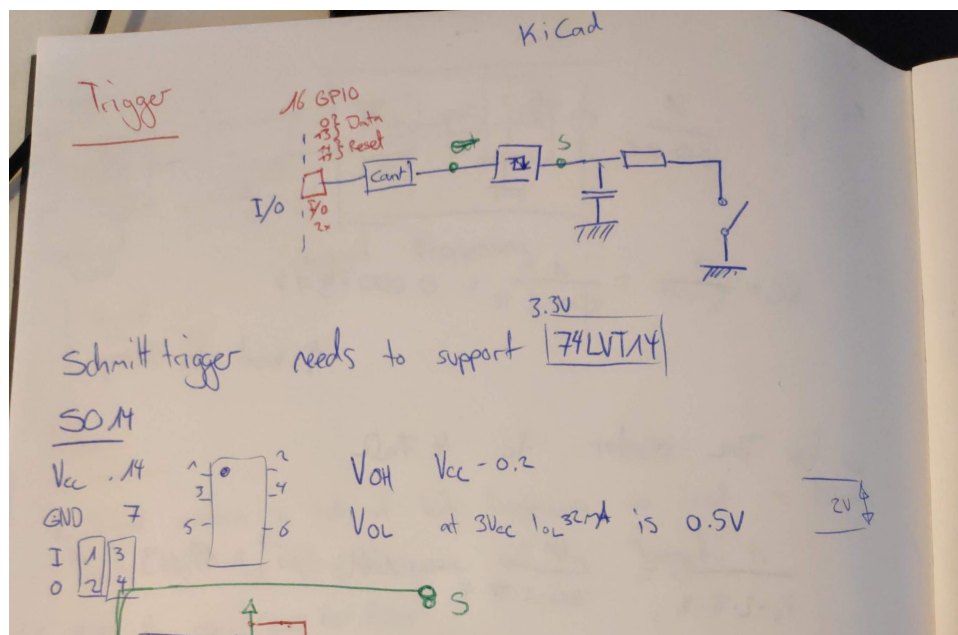 KiCad
Trigger
16 GPIO
0 } Data
13
} Reset
S
Cont
I/O
I/O
2x
3.3V
Schmitt trigger needs to support 74LVT14
SO14
Vcc . 14
GND 7
I 1 3
O 2 4
1 2
3 4
5 6
VOH Vcc - 0.2
VOL at 3Vcc IOL 32mA is 0.5V
2V
S